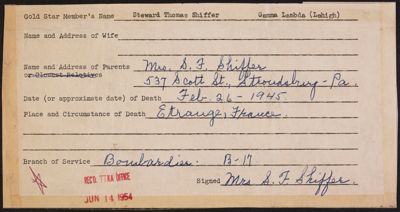 Gold Star Member's Name Steward Thomas Shiffer Gamma Lambda (Lehigh)
Name and Address of Wife
Name and Address of Parents Mrs. S. F. Shiffer
or Closest Relatives 537 Scott St., Stroudsburg - Pa.
Date (or approximate date) of Death Feb. 26 - 1945.
Place and Circumstance of Death Etrange, France.
Branch of Service Bombardier. B-17
REC'D. OFFICE
Signed Mrs S. F. Shiffer.
JUN 14 1954